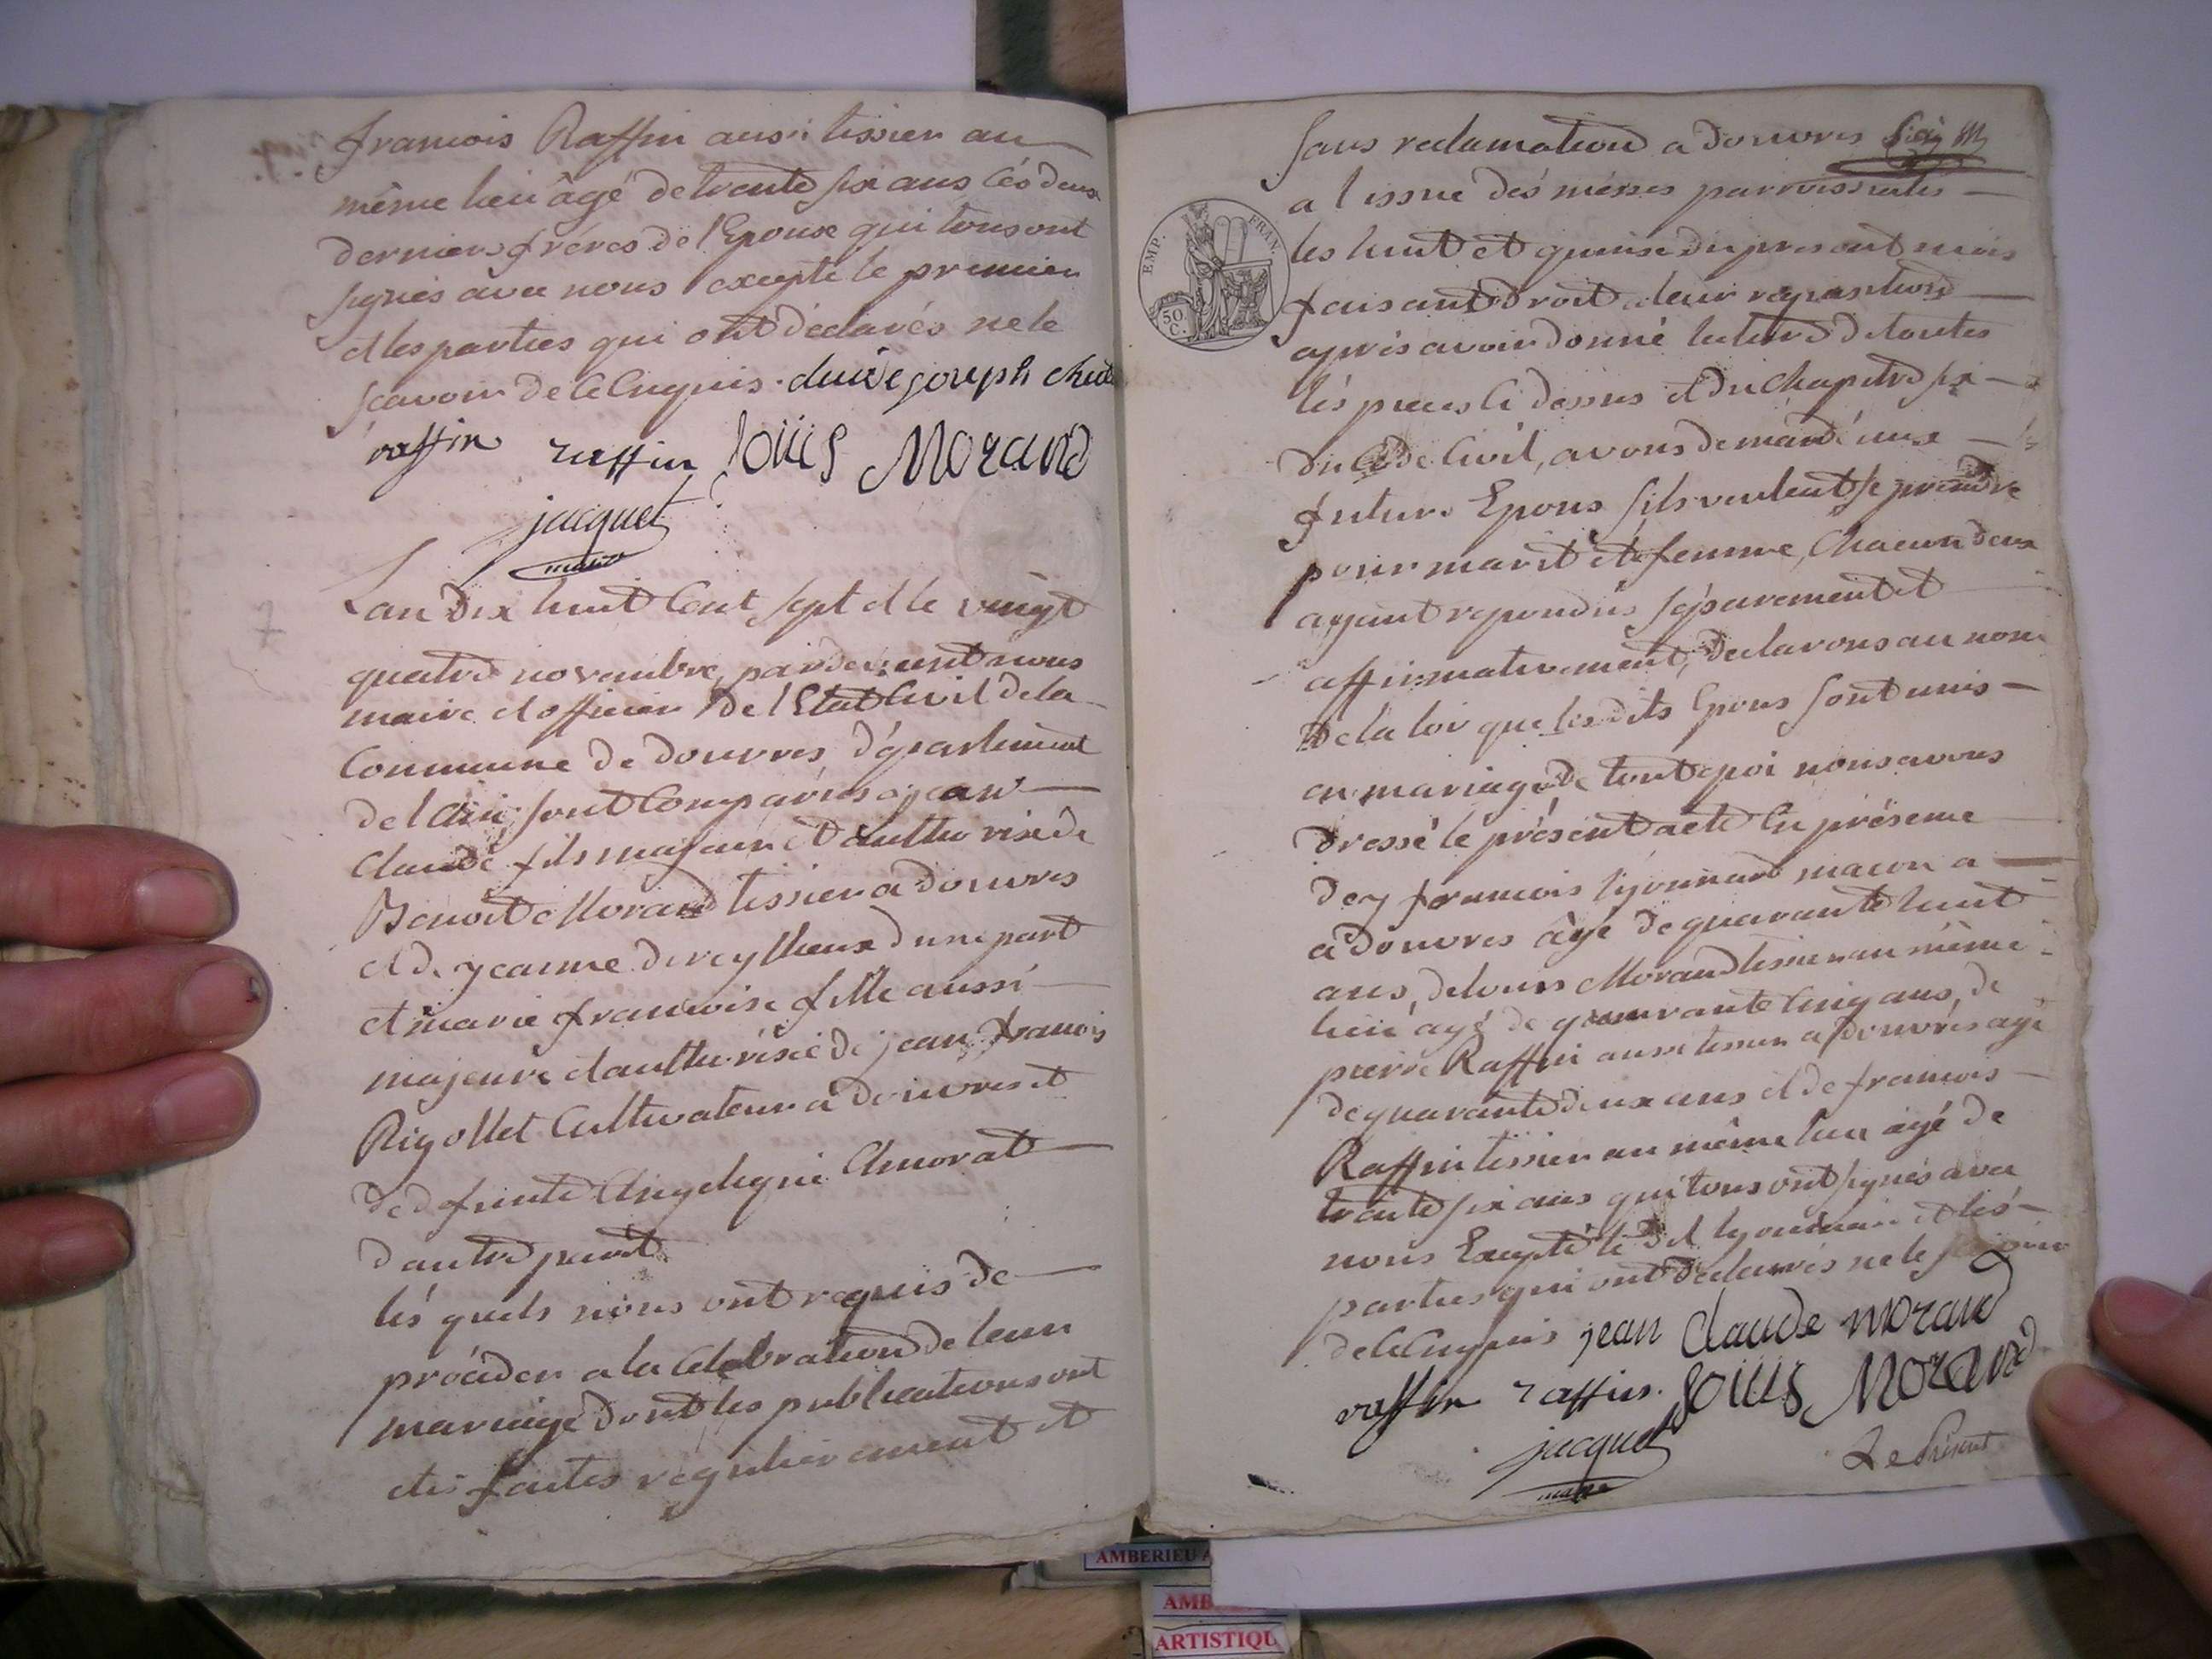 francois Raffin aussi tissier au
même lieu âgé de trente six ans Cés deux
derniers fréres de l'Epouse qui tous ont
signés avec nous excepté le premier
et les parties qui ont déclarés ne le
scavoir de ce Enquis. joseph
raffin raffin loüis Morand
jacquet
maire
7
Lan Dix huit Cent sept et le vingt
quatre novembre, pardevant nous
maire et officier de l'Etat Civil de la
Commune de douvres, département
de l'Ain, sont Comparus jean
Claude fils majeur et authorisé de
Benoit Morand tissier a douvres
et de jeanne d'une part
et marie francoise fille aussi
majeure et authorisée de jean francois
Rigollet Cultivateur a douvres et
de defunte Angelique
dautre part
lés quels nous ont requis de
procéder a la Celebration de leur
mariage dont les publications ont
étés faites regulierement et
sans reclamation a douvres
a l issue dés mésses parroissiales
les huit et quinse du present mois
faisant droit a leur requisition
aprés avoir donné lecture de toutes
lés pieces Ci dessus et du Chapitre six
du Code Civil, avons demandé aux
futurs Epoux sils veulent se prendre
pour marit et femme, Chacun deux
ayant repondus séparement et
affirmativement, declarons au nom
de la loi que les dits Epoux sont unis
en mariage de tout quoi nous avons
dressé le présent acte En présence
de francois lyonnard macon a
a douvres âgé de quarante huit
ans, de louis Morand tissier au même
lieu agé de quarante Cinq ans, de
pierre Raffin aussi tissier a douvres agé
de quarante deux ans et de francois
Raffin tissier au même lieu agé de
trente six ans qui tous ont signés avec
nous Excepté le dit lyonnard et lés
parties qui ont declarés ne le scavoir
de ce Enquis jean Claude morand
raffin raffin. loüis Morand
jacquet
maire
EMP. FRAN.
50. C.
AMBERIEU
AMB
ARTISTIQU